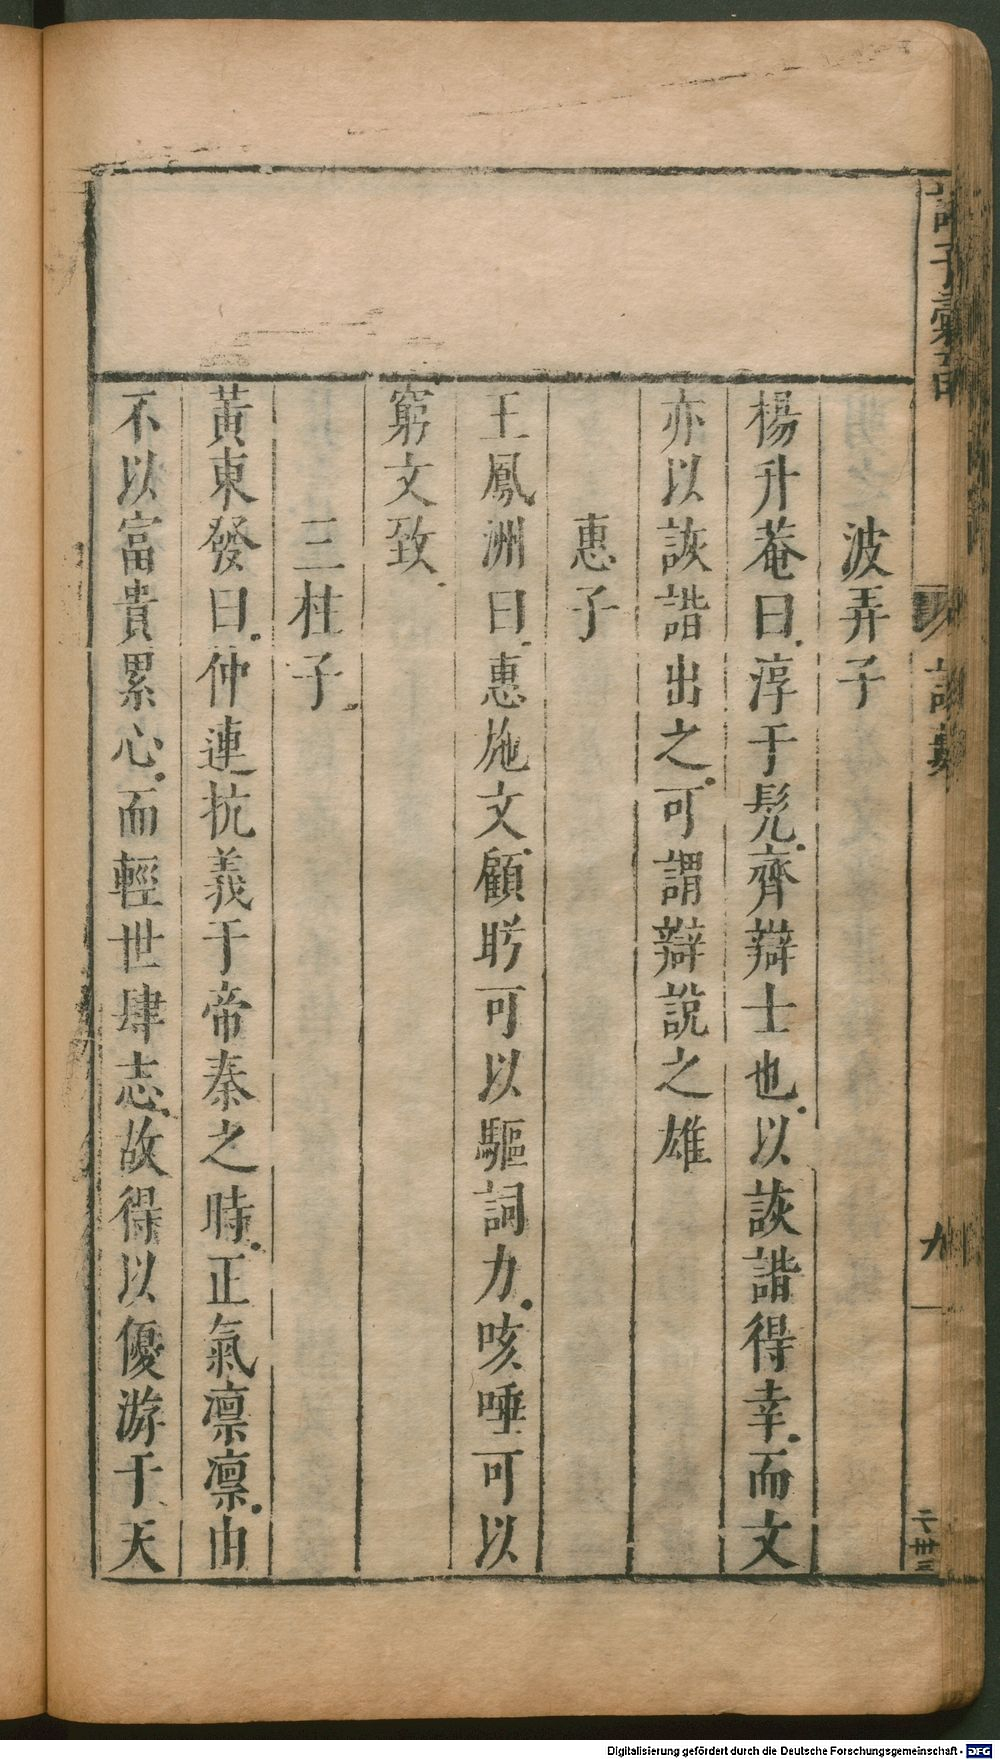 波弄子
楊升菴曰淳于髡齊辯士也以詼諧得幸而文
亦以詼諧出之可謂辯說之雄
惠子
王鳳洲曰惠施文顧盼可以驅詞力咳唾可以
窮文致
三柱子
黃東發曰仲連抗義于帝秦之時正氣凛凛由
不以富貴累心而輕世肆志故得以優游于天
九
Digitalisierung gefördert durch die Deutsche Forschungsgemeinschaft - DFG